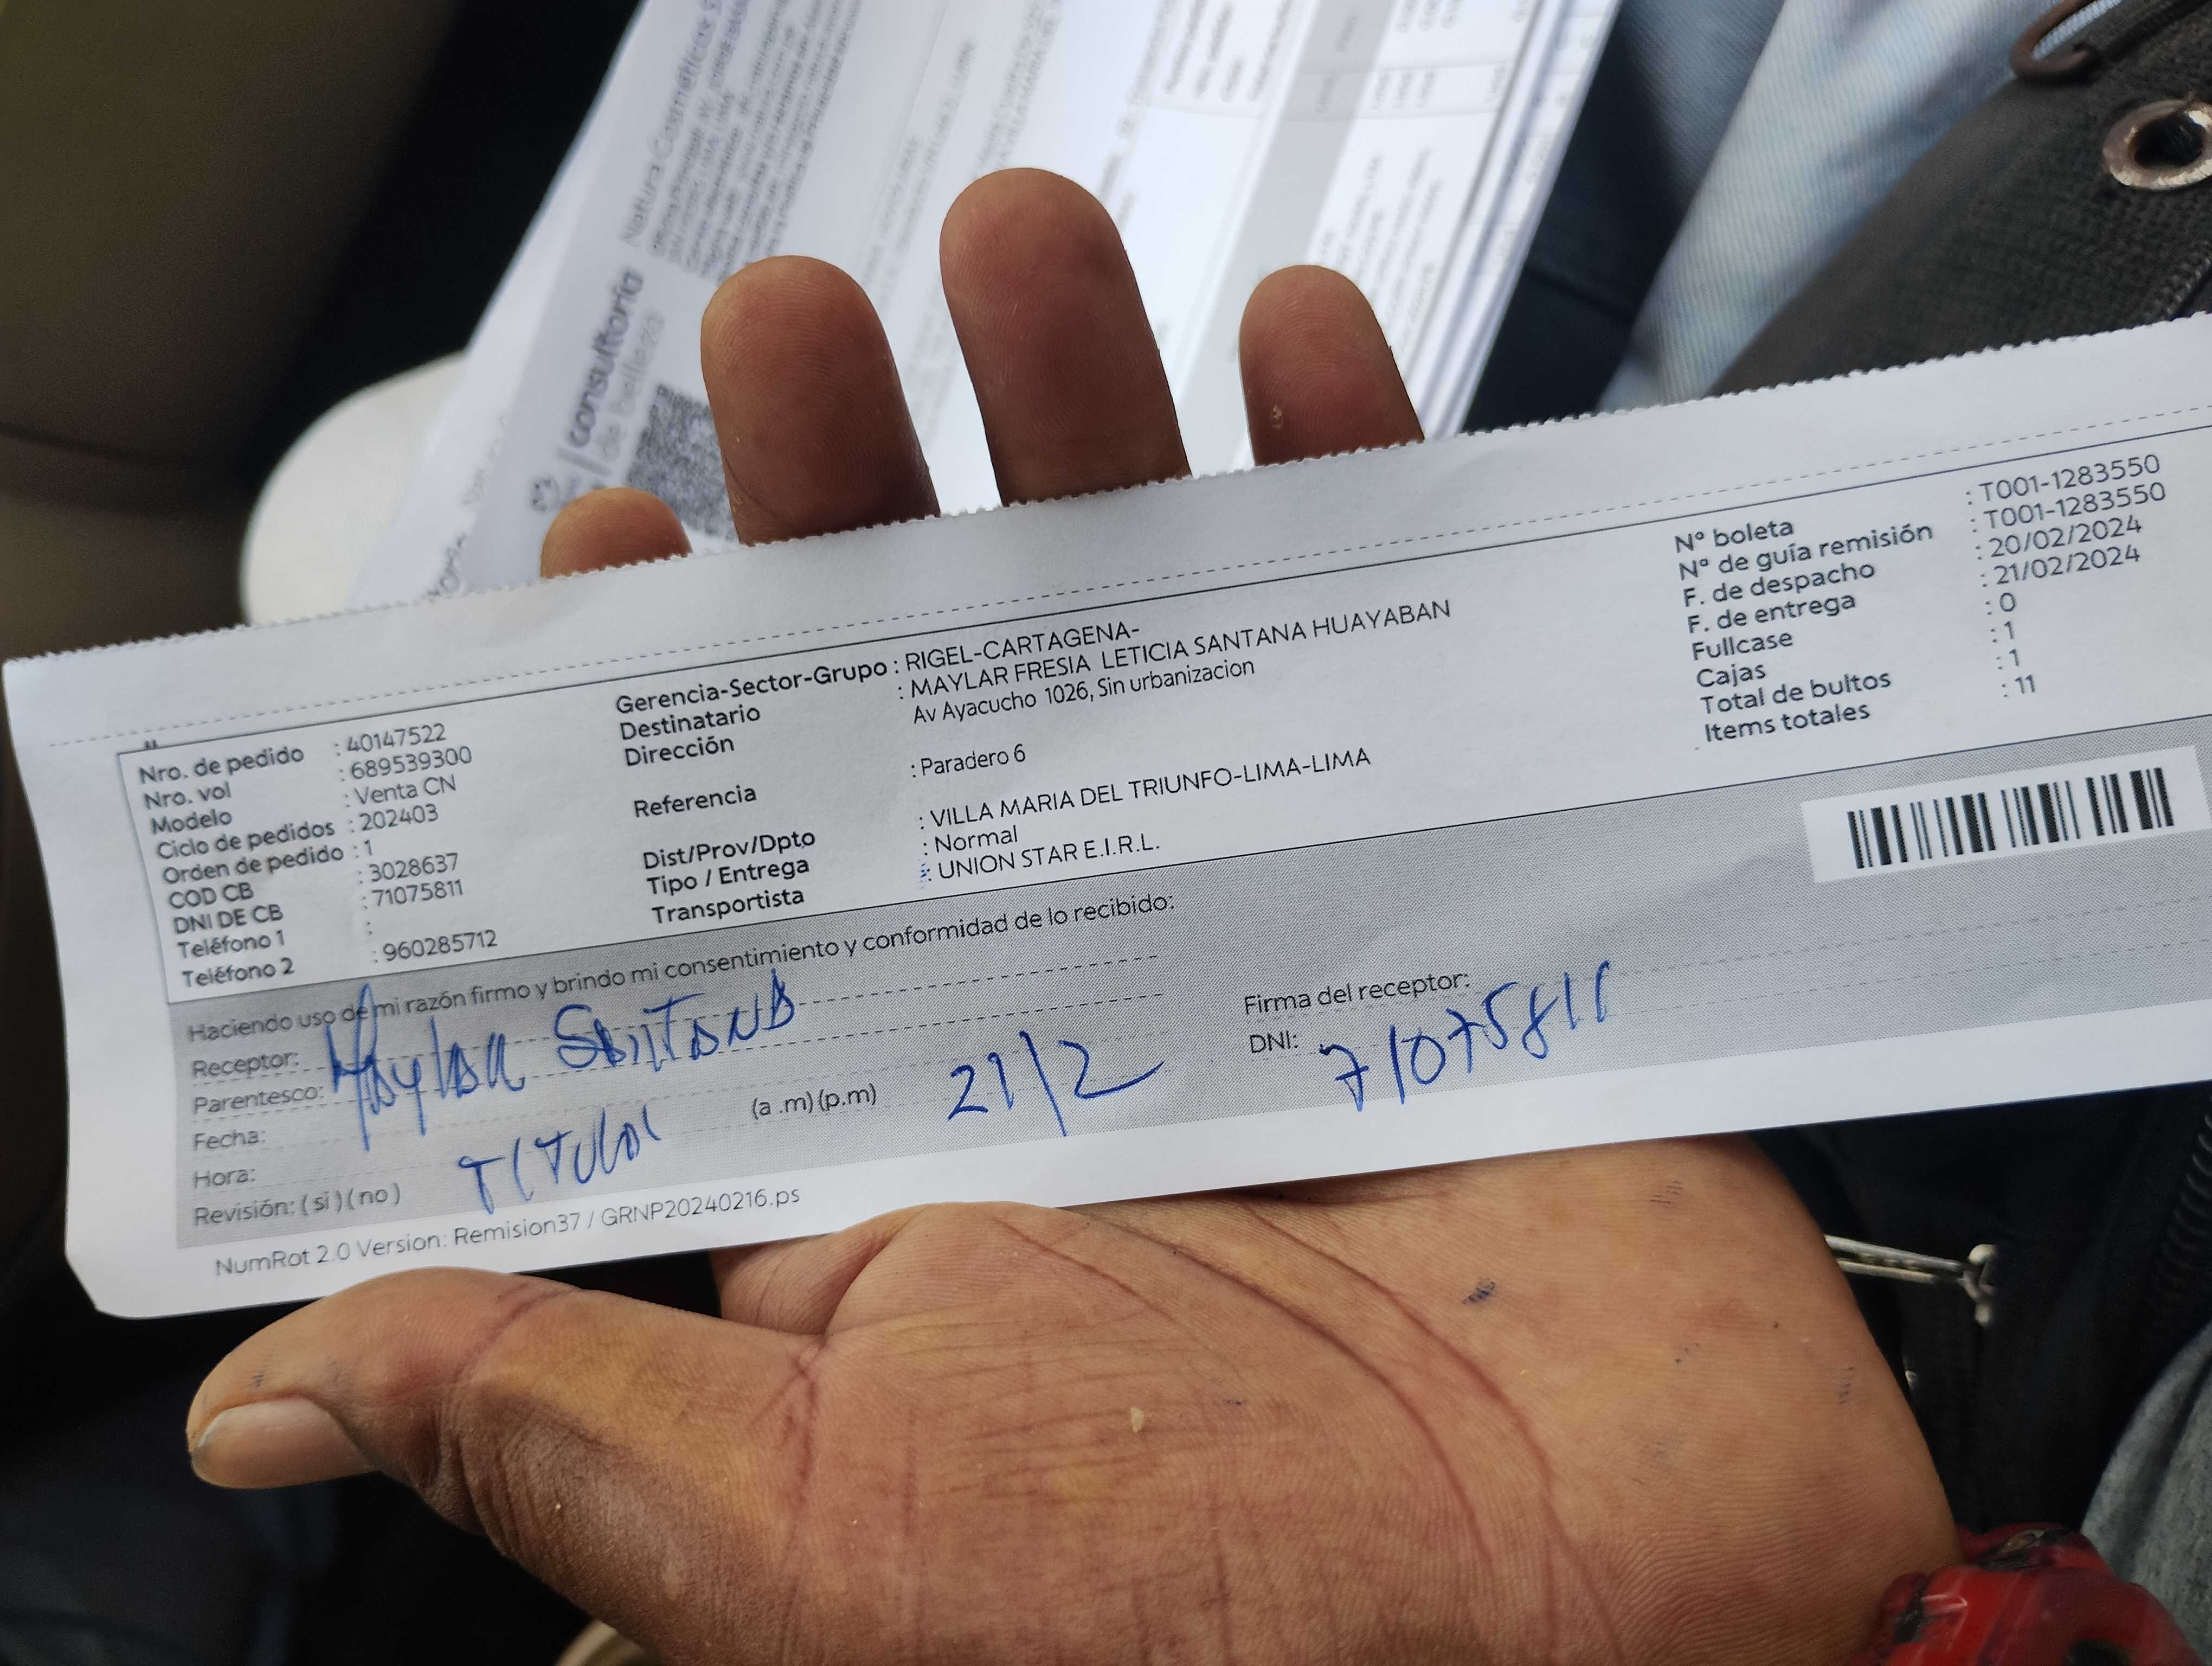 consultoría
de belleza
Natura Cosméticos
Nro. de pedido : 40147522
Nro. vol : 689539300
Modelo : Venta CN
Ciclo de pedidos : 202403
Orden de pedido : 1
COD CB : 3028637
DNI DE CB : 71075811
Teléfono 1 :
Teléfono 2 : 960285712
Gerencia-Sector-Grupo : RIGEL-CARTAGENA-
Destinatario : MAYLAR FRESIA LETICIA SANTANA HUAYABAN
Dirección Av Ayacucho 1026, Sin urbanizacion
Referencia : Paradero 6
Dist/Prov/Dpto : VILLA MARIA DEL TRIUNFO-LIMA-LIMA
Tipo / Entrega : Normal
Transportista : UNION STAR E.I.R.L.
N° boleta : T001-1283550
N° de guía remisión : T001-1283550
F. de despacho : 20/02/2024
F. de entrega : 21/02/2024
Fullcase : 0
Cajas : 1
Total de bultos : 1
Items totales : 11
Haciendo uso de mi razón firmo y brindo mi consentimiento y conformidad de lo recibido:
Receptor: Maylar Santana
Parentesco:
Fecha:
Hora: (a .m) (p.m) 21/2
Revisión: ( si ) ( no ) Titular
Firma del receptor:
DNI: 71075811
NumRot 2.0 Version: Remision37 / GRNP20240216.ps